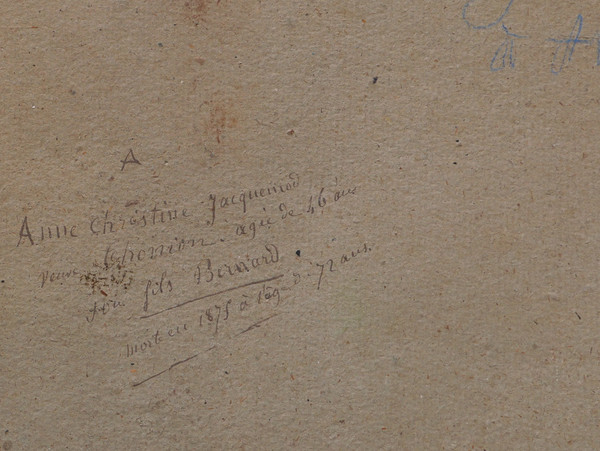 A
Anne Christine Jacqueminod
veuve Thorrion. agée de 46 ans
fils Bernard
mort en 1875 à l'age de 72 ans.